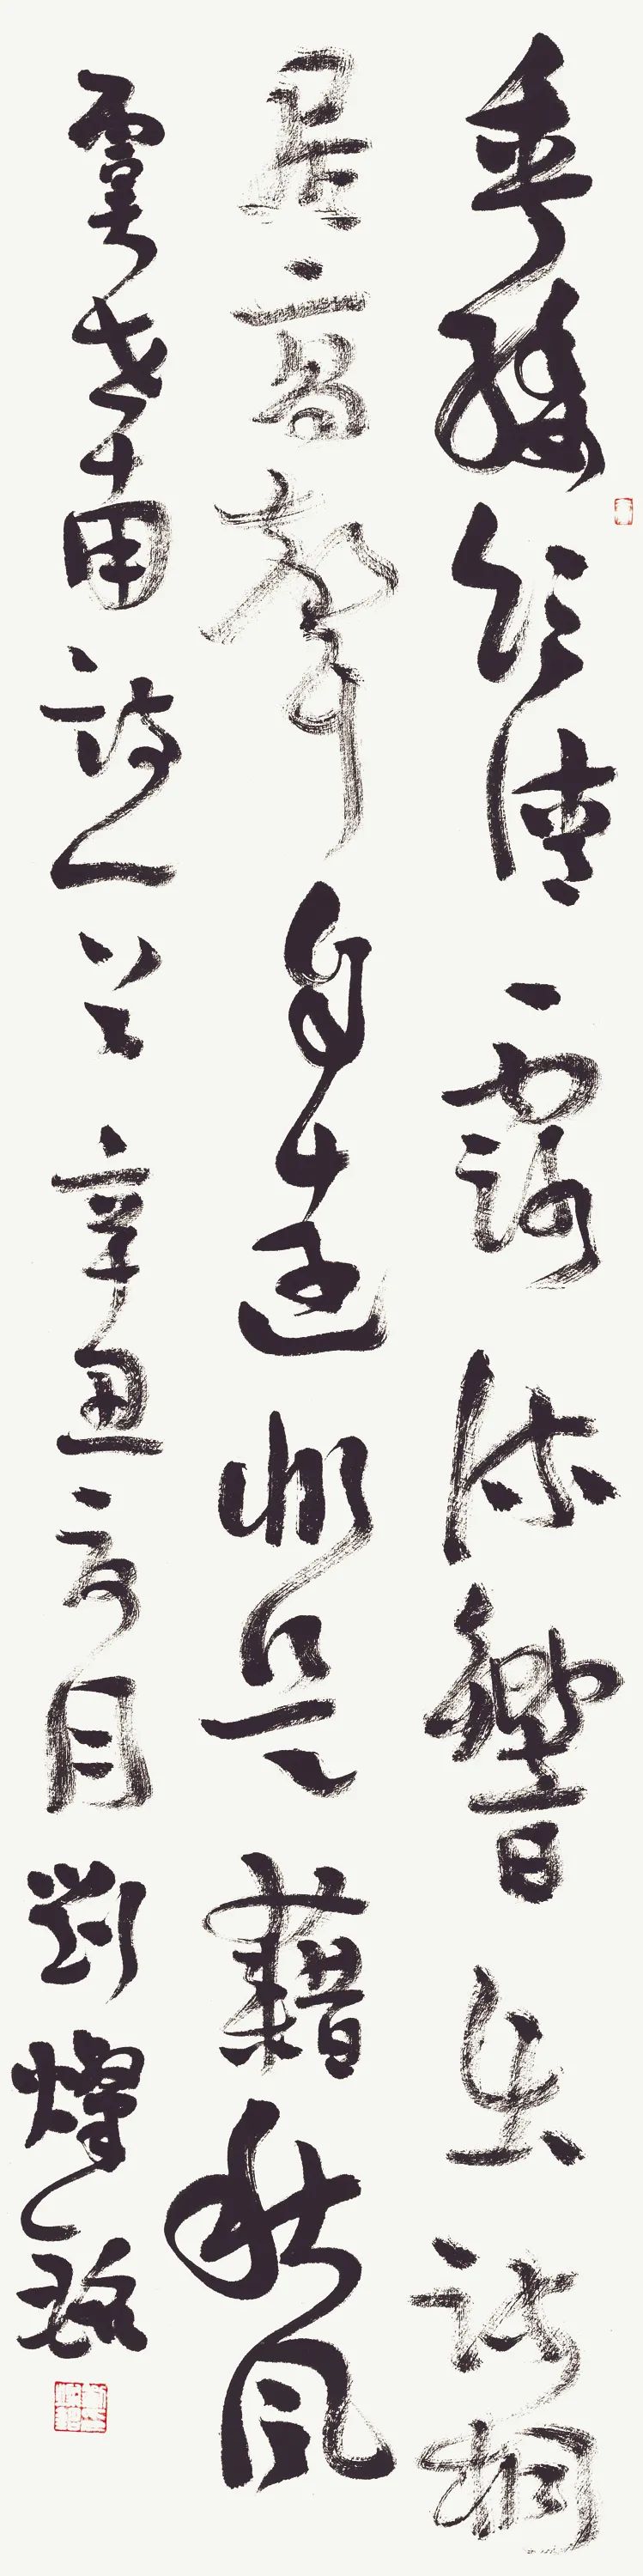 垂緌飲清露流響出疏桐
居高聲自遠非是藉秋風
虞世南詩一首辛丑亥月劉燁